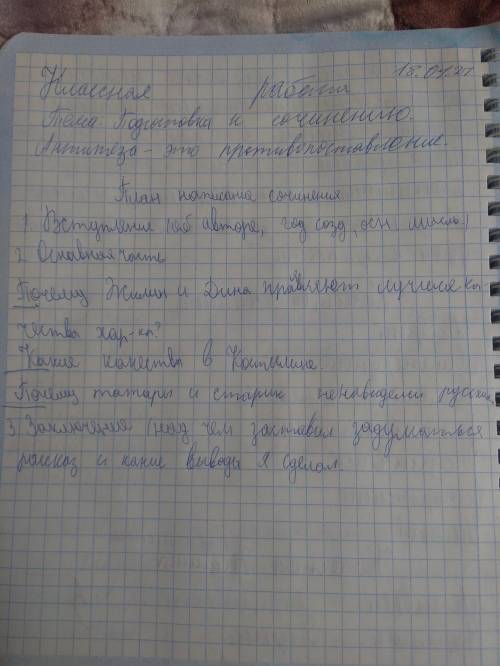 15.04.21
Классная работа
Тема: Подготовка к сочинению.
Антитеза - это противопоставление.
План написания сочинения
1. Вступление (об авторе, год созд, осн. мысль)
2. Основная часть
Почему Жилин и Дина проявляют лучшие ка-
чества хар-ра?
Какие качества в Костылине.
Почему татары и старик ненавидели русских
3. Заключение (над чем заставил задуматься
рассказ и какие выводы я сделал.